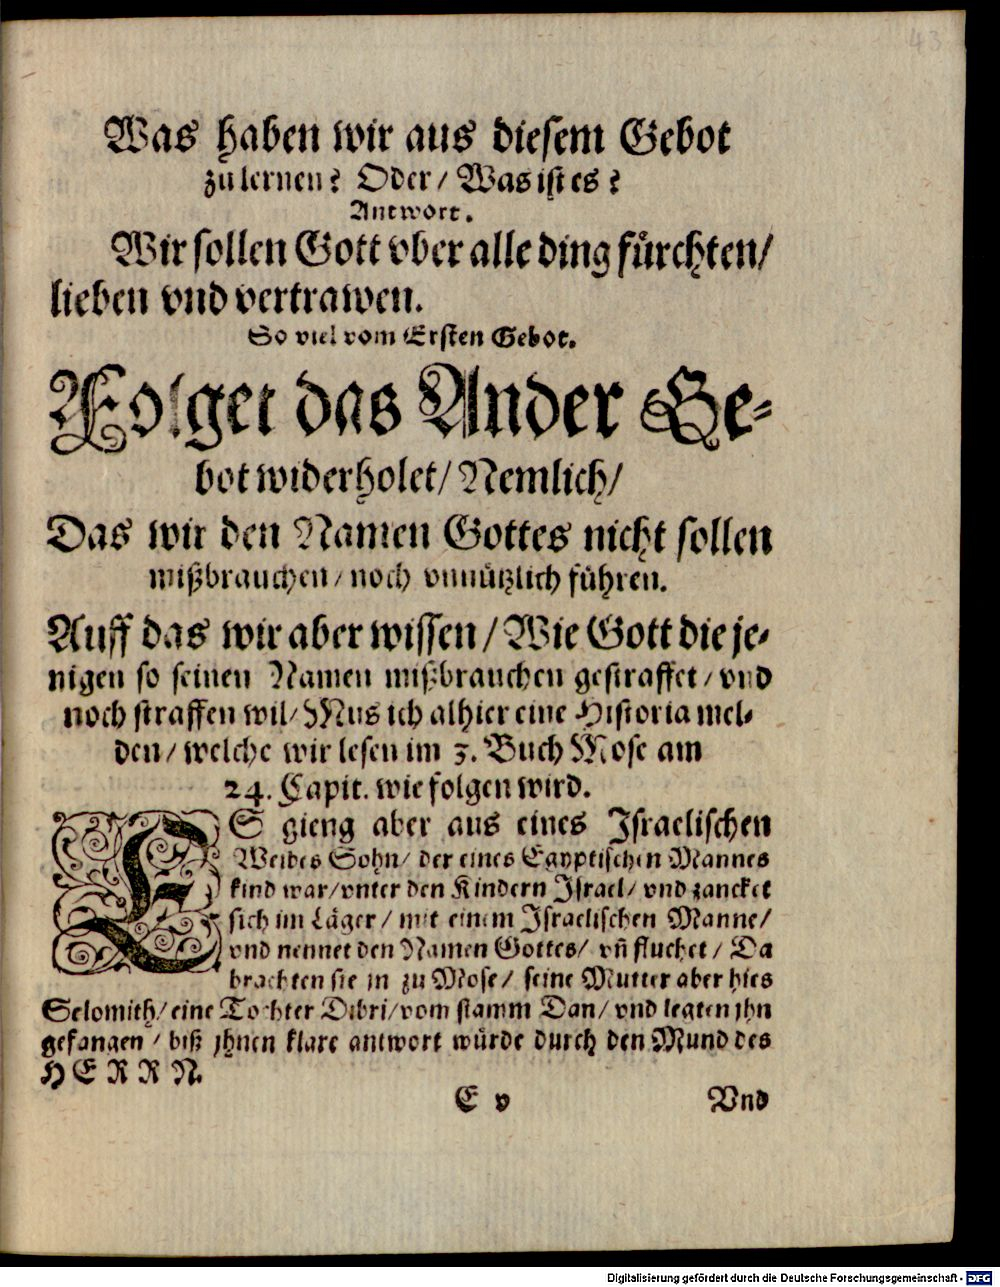 43
Was haben wir aus diesem Gebot
zu lernen? Oder/ Was ist es?
Antwort.
Wir sollen Gott vber alle ding fürchten/
lieben vnd vertrawen.
So viel vom Ersten Gebot.
Folget das Ander Ge-
bot widerholet/ Nemlich/
Das wir den Namen Gottes nicht sollen
mißbrauchen/ noch vnnützlich führen.
Auff das wir aber wissen/ Wie Gott die je-
nigen so seinen Namen mißbrauchen gestraffet/ vnd
noch straffen wil/ Mus ich alhier eine Historia mel-
den/ welche wir lesen im 3. Buch Mose am
24. Capit. wie folgen wird.
ES gieng aber aus eines Israelischen
Weibes Sohn/ der eines Egyptischen Mannes
kind war/ vnter den Kindern Israel/ vnd zancket
sich im Läger/ mit einem Israelischen Manne/
vnd nennet den Namen Gottes/ vn̄ fluchet/ Da
brachten sie jn zu Mose/ seine Mutter aber hies
Selomith/ eine Tochter Dibri/ vom stamm Dan/ vnd legten jhn
gefangen/ biß jhnen klare antwort würde durch den Mund des
HERRN.
E v Vnd
Digitalisierung gefördert durch die Deutsche Forschungsgemeinschaft - DFG